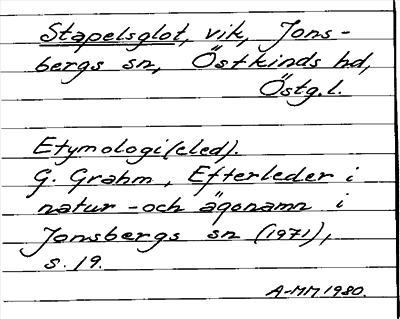 Stapelsglot, vik, Jons-
bergs sn, Östkinds hd,
Östg.l.
Etymologi (eled).
G. Grahm, Efterleder i
natur- och ägonamn i
Jonsbergs sn (1971),
s. 19.
A-MM 1980.